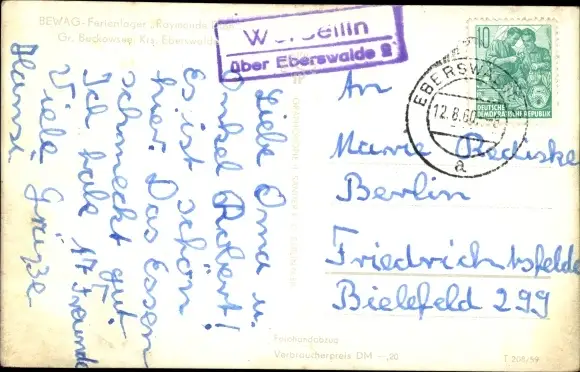 BEWAG-Ferienlager „Raymonde Dien“
Gr. Buckowsee, Krs. Eberswalde
Werbellin
über Eberswalde 2
10
DEUTSCHE
DEMOKRATISCHE REPUBLIK
EBERSWALDE
12.8.60
a
Liebe Oma u.
Onkel Robert!
Es ist schön
hier. Das Essen
schmeckt gut.
Ich habe 17 Freunde
Viele Grüße
Hansi
An
Marie Rediske
Berlin
Friedrichsfelde
Bielefeld 299
Fotohandabzug
Verbraucherpreis DM -,20
T 208/59